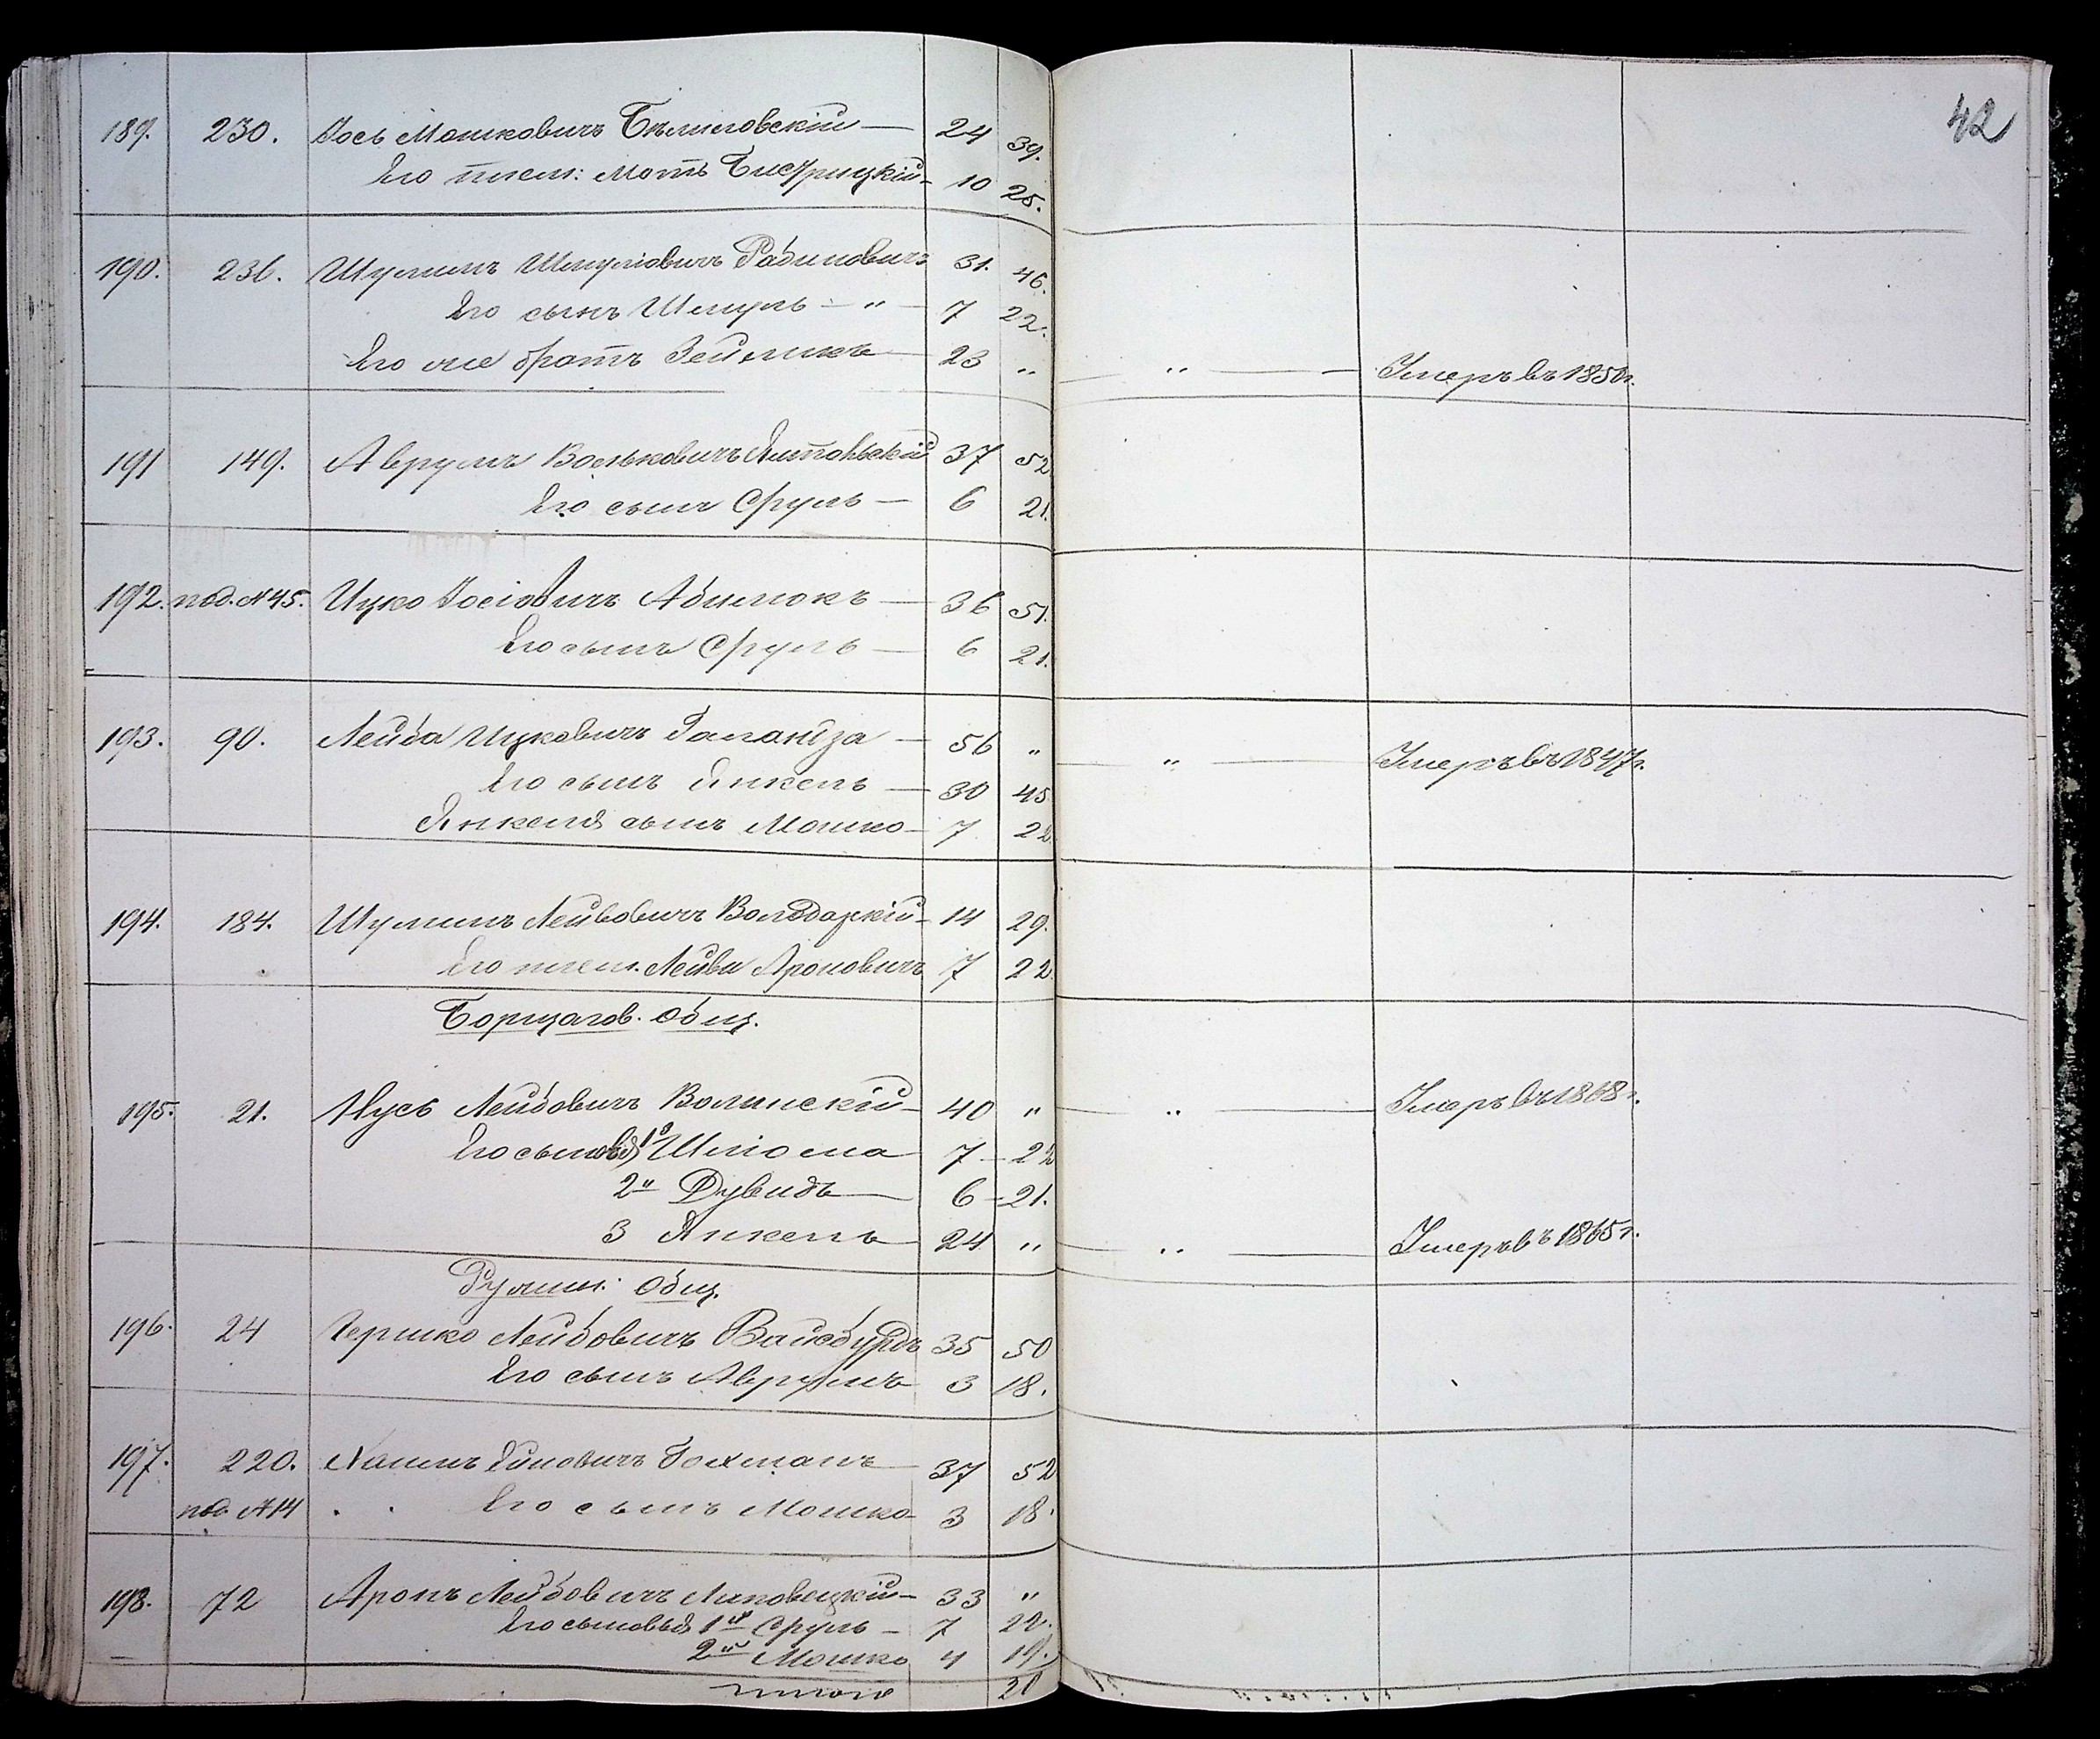 42
189. 230. Іось Мошковичъ Бѣлиловскій — 24 39.
Его плем

: Мотъ Бистрицкій - 10 25.
190. 236. Шулимъ Шмуліовичъ Рабиновичъ 31. 46.
Его сынъ Шмуль — " — 7 22.
Его же братъ Зейликъ — 23 " — " — Умеръ въ 1850 г.
191 149. Аврумъ Вольковичъ 37 52
Его сынъ Сруль — 6 21.
192. под. №45. Ицко Іосіовичъ — 36 51.
Его сынъ Сруль — 6 21.
193. 90. Лейба Ицковичъ — 56 " — " — Умеръ въ 1847 г.
Его сынъ Янкель — 30 45
Янкеля сынъ Мошко — 7 22
194. 184. Шулимъ Лейбовичъ Володаркій - 14 29.
Его племъ. Лейба Ароновичъ 7 22.
Борщагов. Общ.
195. 21. Нусь Лейбовичъ Волинскій - 40 " — " — Умеръ въ 1868 г.
Его сыновья 1й Шліома 7 - 22
2й Дувидъ — 6 - 21.
3 Янкель 24 " — " — Умеръ въ 1865 г.
Ружин: Общ.
196. 24 Гершко Лейбовичъ Вайсбурдъ 35 50
Его сынъ Аврумъ 3 18.
197. 220. Хаимъ 37 52
под №14 Его сынъ Мошко 3 18.
198. 72 Аронъ Лейбовичъ Липовецкій - 33 "
Его сыновья 1й Сруль - 7 22.
2й Мошко 4 19.
итого 20